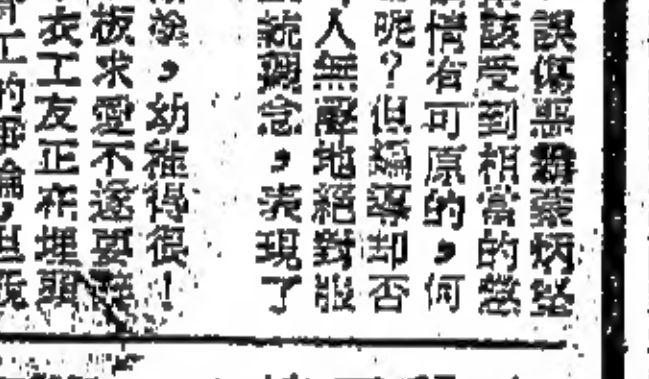 誤傷惡霸蔡炳堅
該受到相當的懲
情有可原的，何
呢？但編導却否
人無辜地絕對服
統觀念，表現了
撿，幼稚得很！
板求愛不遂要辭
衣工友正在埋頭
工的爭論，但